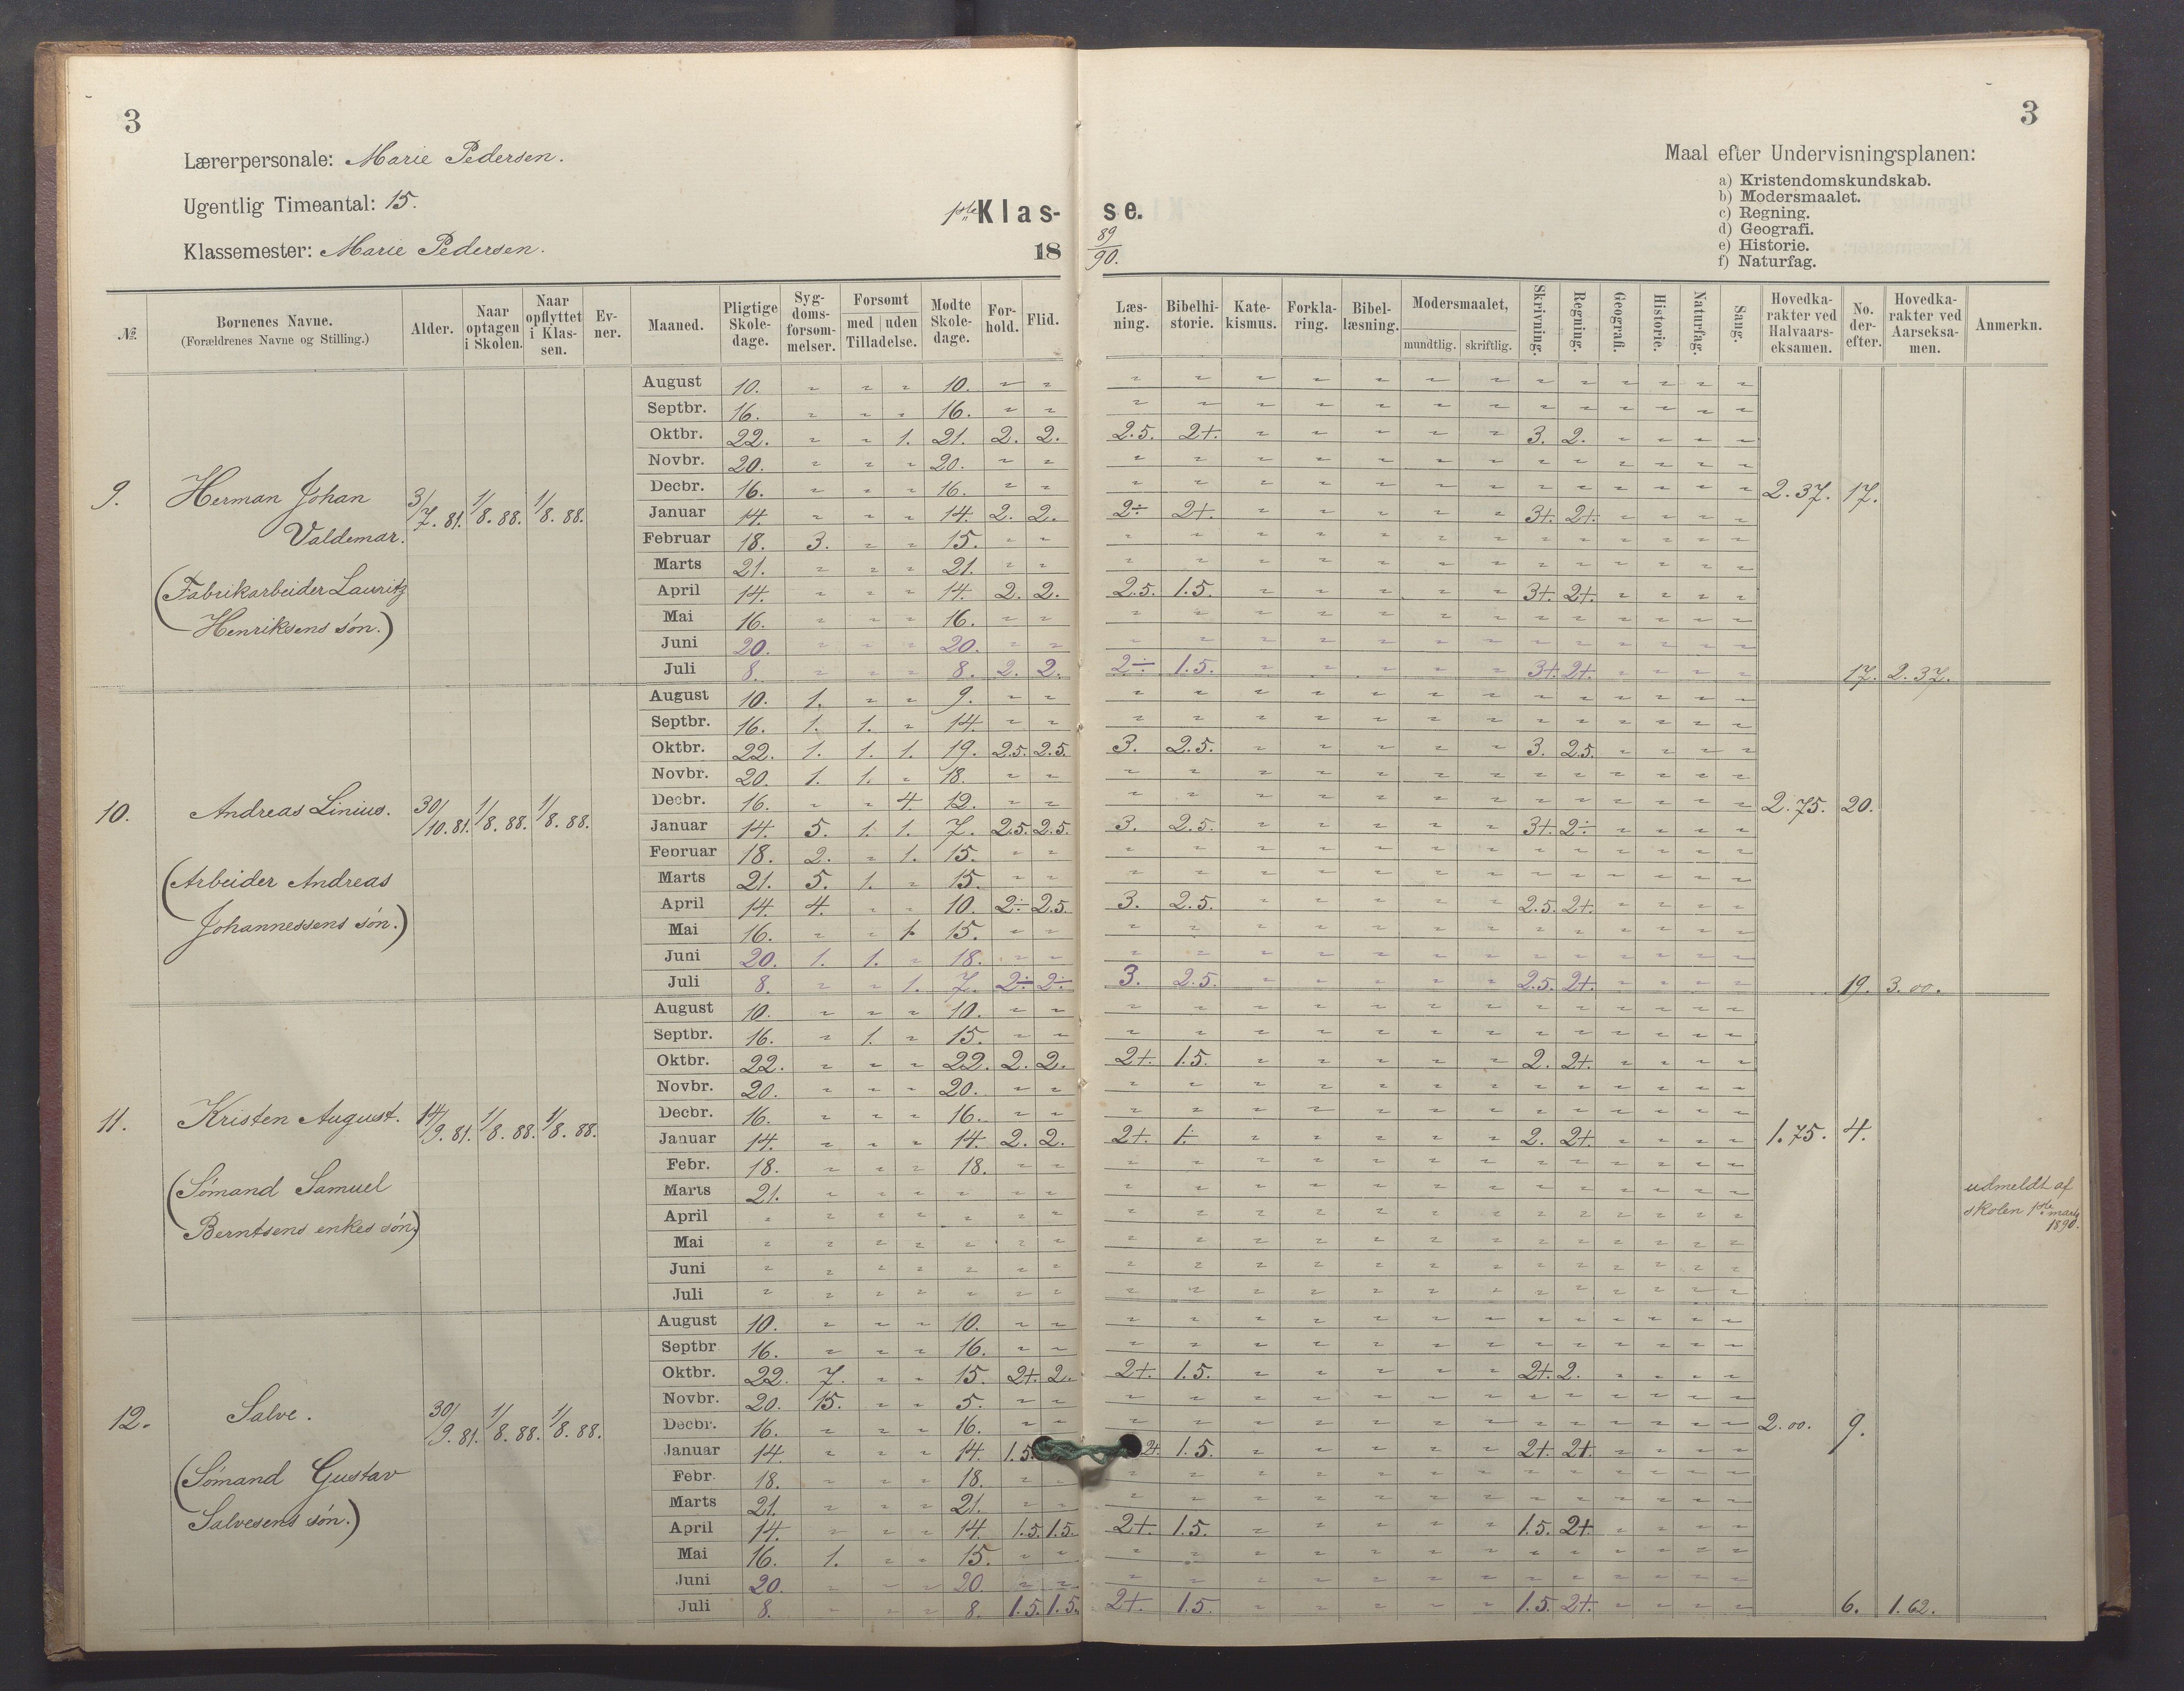 3
Lærerpersonale: Marie Pedersen.
Ugentlig Timeantal: 15.
Klassemester: Marie Pedersen.
1ste Klas-
18
se.
89
90.
3
Maal efter Undervisningsplanen:
a) Kristendomskundskab.
b) Modersmaalet.
c) Regning.
d) Geografi.
e) Historie.
f) Naturfag.
№ Børnenes Navne. (Forældrenes Navne og Stilling.) Alder. Naar optagen i Skolen. Naar opflyttet i Klassen. Evner. Maaned. Pligtige Skoledage. Sygdomsforsømmelser. Forsømt med uden Tilladelse. Mødte Skoledage. Forhold. Flid. Læsning. Bibelhistorie. Katekismus. Forklaring. Bibellæsning. Modersmaalet, mundtlig. skriftlig. Skrivning. Regning. Geografi. Historie. Naturfag. Sang. Hovedkarakter ved Halvaarseksamen. No. derefter. Hovedkarakter ved Aarseksamen. Anmerkn.
9. Herman Johan Valdemar. 3/7. 81. 1/8. 88. 1/8. 88.
(Fabrikarbeider Lauritz
Henriksens søn.)
August 10. 10.
Septbr. 16. 16.
Oktbr. 22. 1. 21. 2. 2. 2.5. 2+. 3. 2.
Novbr. 20. 20.
Decbr. 16. 16. 2.37. 17.
Januar 14. 14. 2. 2. 2÷ 2+. 3+. 2+.
Februar 18. 3. 15.
Marts 21. 21.
April 14. 14. 2. 2. 2.5. 1.5. 3+. 2+.
Mai 16. 16.
Juni 20. 20.
Juli 8. 8. 2. 2. 2÷ 1.5. 3+. 2+. 17. 2.37.
10. Andreas Linius. 30/10. 81. 1/8. 88. 1/8. 88.
(Arbeider Andreas
Johannessens søn.)
August 10. 1. 9.
Septbr. 16. 1. 1. 14.
Oktbr. 22. 1. 1. 1. 19. 2.5. 2.5. 3. 2.5. 3. 2.5.
Novbr. 20. 1. 1. 18.
Decbr. 16. 4. 12. 2.75. 20.
Januar 14. 5. 1. 1. 7. 2.5. 2.5. 3. 2.5. 3+. 2÷
Februar 18. 2. 1. 15.
Marts 21. 5. 1. 15.
April 14. 4. 10. 2÷ 2.5. 3. 2.5. 2.5. 2+.
Mai 16. 1. 15.
Juni 20. 1. 1. 18.
Juli 8. 1. 7. 2÷ 2÷ 3. 2.5. 2.5. 2+. 19. 3.00.
11. Kristen August. 14/9. 81. 1/8. 88. 1/8. 88.
(Sømand Samuel
Berntsens enkes søn.)
August 10. 10.
Septbr. 16. 1. 15.
Oktbr. 22. 22. 2. 2. 2+. 1.5. 2. 2+.
Novbr. 20. 20.
Decbr. 16. 16.
Januar 14. 14. 2. 2. 2+. 1÷ 2. 2+. 1.75. 4.
Febr. 18. 18.
Marts 21.
April
Mai
Juni
Juli
udmeldt af
skolen 1ste marts
1890.
12. Salve. 30/9. 81. 1/8. 88. 1/8. 88.
(Sømand Gustav
Salvesens søn.)
August 10. 10.
Septbr 16. 16.
Oktbr. 22. 7. 15. 2+. 2. 2+. 1.5. 2+. 2.
Novbr. 20. 15. 5.
Decbr. 16. 16. 2.00. 9.
Januar 14. 14. 1.5. 2+. 1.5. 2+. 2+.
Febr. 18. 18.
Marts 21. 21.
April 14. 14. 1.5. 1.5. 2+. 1.5. 1.5. 2+.
Mai 16. 1. 15.
Juni 20. 20.
Juli 8. 8. 1.5. 1.5. 2+. 1.5. 1.5. 2+. 6. 1.62.